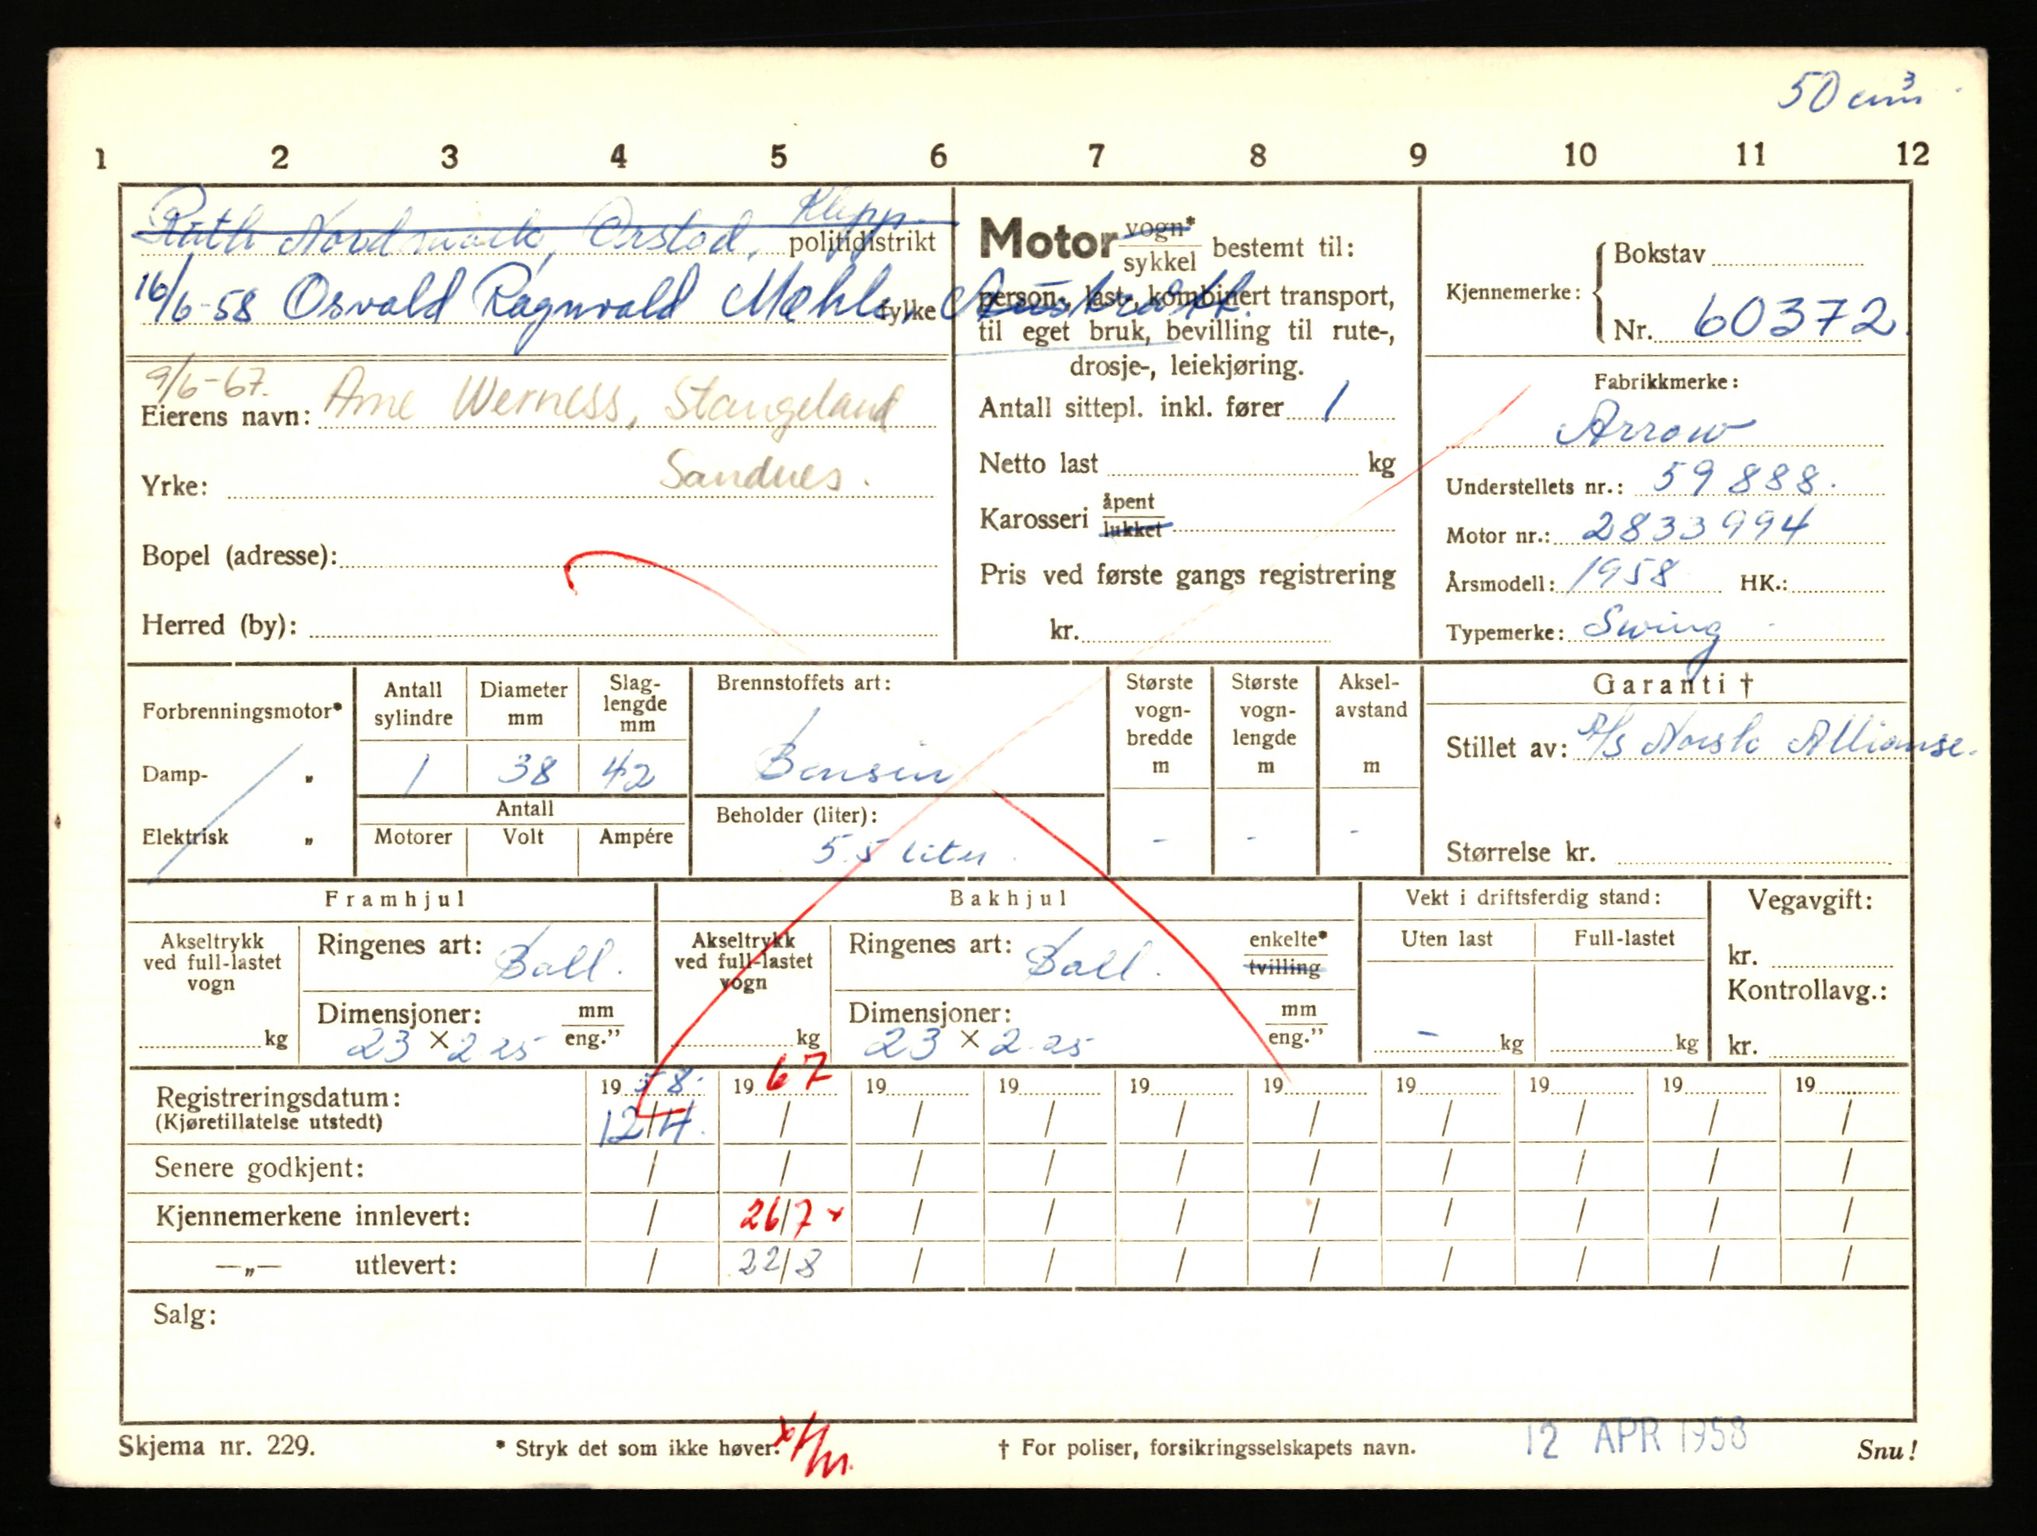 50 cm³
1 2 3 4 5 6 7 8 9 10 11 12
Ruth Nordmark, Orstad, Klepp.
politidistrikt
16/6-58 Osvald Ragnvald Mæhle, Austrått.
fylke
9/6-67.
Eierens navn: Arne Werness, Stangeland
Yrke: Sandnes.
Bopel (adresse):
Herred (by):
Motor vogn* sykkel bestemt til:
person-, last-, kombinert transport,
til eget bruk, bevilling til rute-,
drosje-, leiekjøring.
Antall sittepl. inkl. fører 1
Netto last kg
Karosseri åpent lukket
Pris ved første gangs registrering
kr.
Kjennemerke: Bokstav
Nr. 60372.
Fabrikkmerke:
Arrow
Understellets nr.: 59888.
Motor nr.: 2833994
Årsmodell: 1958 HK.:
Typemerke: Swing
Forbrenningsmotor*
Damp- „
Elektrisk „
Antall sylindre
Diameter mm
Slag-lengde mm
1 38 42
Antall
Motorer Volt Ampére
Brennstoffets art:
Bensin
Beholder (liter):
5.5 liter.
Største vogn-bredde m
-
Største vogn-lengde m
-
Aksel-avstand m
-
Garanti †
Stillet av: A/S Norsk Allianse.
Størrelse kr.
Framhjul
Akseltrykk ved full-lastet vogn
kg
Ringenes art: Ball.
Dimensjoner: mm eng."
23 × 2.25
Bakhjul
Akseltrykk ved full-lastet vogn
kg
Ringenes art: Ball.
enkelte* tvilling
Dimensjoner: mm eng."
23 × 2.25
Vekt i driftsferdig stand:
Uten last Full-lastet
- kg kg
Vegavgift:
kr.
Kontrollavg.:
kr.
Registreringsdatum: 19 58. 19 67 19 19 19 19 19 19 19 19
(Kjøretillatelse utstedt) 12/4. / / / / / / / / /
Senere godkjent: / / / / / / / / / /
Kjennemerkene innlevert: / 26/7 x / / / / / / / /
—„— utlevert: / 22/8 / / / / / / / /
Salg:
Skjema nr. 229.
* Stryk det som ikke høver.
† For poliser, forsikringsselskapets navn.
12 APR 1958
Snu!